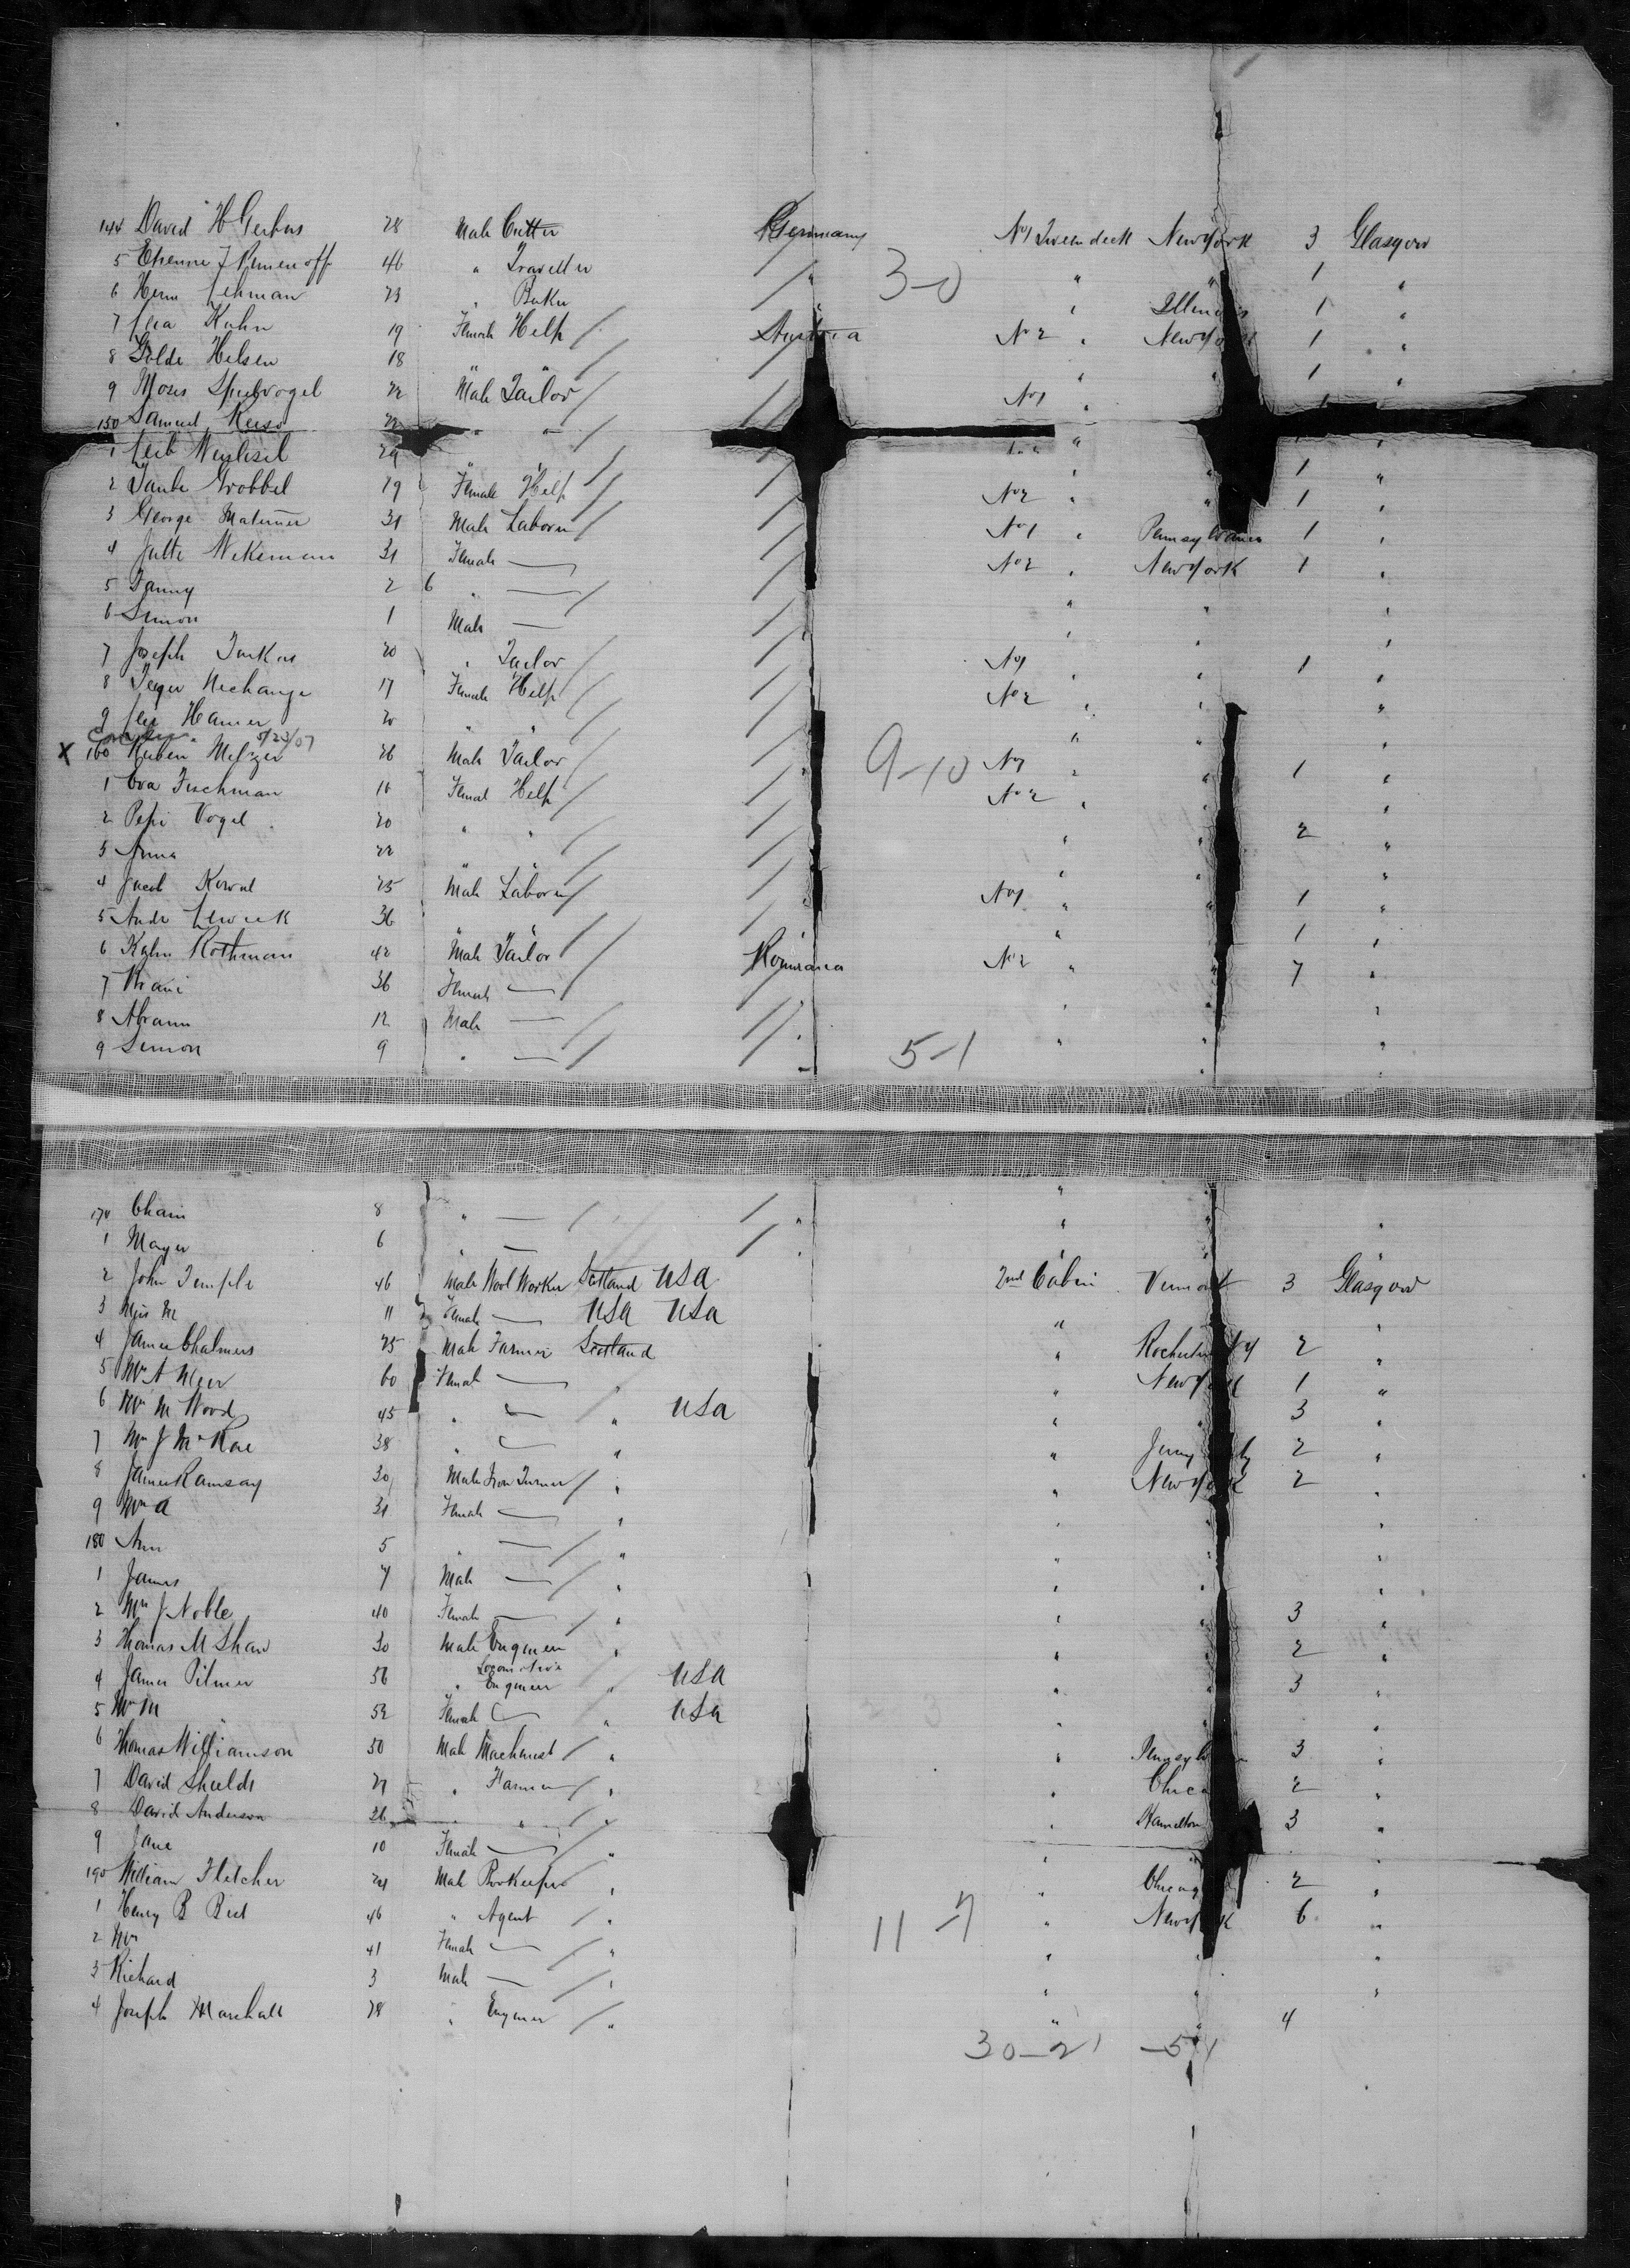 144 David H Gerhus 28 Male Cutter Germany No 1 Tween deck New York 3 Glasgow
5 Etienne J 46 " Traveller " " " 1 "
6 Herm Lehman 23 " Baker " Illinois 1 "
3-0
7 Lea Kuhn 19 Female Help Austria No 2 " New York 1 "
8 Golde Helsen 18 " " " " 1 "
9 Moses Spielvogel 22 Male Tailor No 1 " 1
150 Samuel 22 " "
1 Leib 29 " " " " 1 "
2 Taube Grobbel 19 Female Help No 2 " " 1 "
3 George 31 Male Laborer No 1 " Pennsylvania 1 "
4 Jutte 31 Female — No 2 " New York 1 "
5 Fanny 2 6 " — " " "
6 Simon 1 Male — " " "
7 Joseph 20 " Tailor No 1 " " 1 "
8 17 Female Help No 2 " " "
9 Hamer 20 " " " " "
5/23/07
X 160 Ruben Melzer 26 Male Tailor No 1 " " 1 "
9-10
1 Eva Fischman 16 Female Help No 2 " "
2 Pepi Vogel 20 " " " " 2 "
3 Anna 22 " " " " "
4 Jacob Kowal 25 Male Laborer No 1 " " 1 "
5 Andr 36 " " " 1 "
6 Rothman 42 Male Tailor Roumania No 2 " " 7 "
7 36 Female — " " "
8 Abram 12 Male — " " "
9 Simon 9 " — " "
5-1
170 Chaim 8 " — " " " "
1 Mayer 6 " — " " " "
2 John Temple 46 Male Wool Worker Scotland USA 2nd Cabin Vermont 3 Glasgow
3 Miss M 11 Female — USA USA " "
4 James Chalmers 25 Male Farmer Scotland " Rochester NY 2 "
5 Mrs A 60 Female — " " New York 1 "
6 Mrs M Wood 45 " — " USA " " 3 "
7 Mrs J McRae 38 " — " " Jersey City 2 "
8 James Ramsay 30 Male Iron Turner " " New York 2 "
9 Mrs A 31 Female — " " " "
180 Ann 5 " — " " " "
1 James 4 Male — " " " "
2 Mrs J Noble 40 Female — " " " 3 "
3 Thomas M Shaw 30 Male Engineer " " " 2 "
4 James Pitmer 56 " Locomotive Engineer " USA " " 3 "
5 Mrs M 52 Female — " USA " " "
6 Thomas Williamson 50 Male Machinist " " Pennsylvania 3 "
7 David Shields 21 " Farmer " " Chicago 2 "
8 David Anderson 26 " " " " Hamilton 3 "
9 Jane 10 Female — " " " "
190 William Fletcher 24 Male Bookeeper " " Chicago 2 "
1 Henry B 46 " Agent " " New York 6 "
11-7
2 Mrs 41 Female — " " " "
3 Richard 3 Male — " " " "
4 Joseph Marshall 28 " Engineer " " " 4
30-21 -51